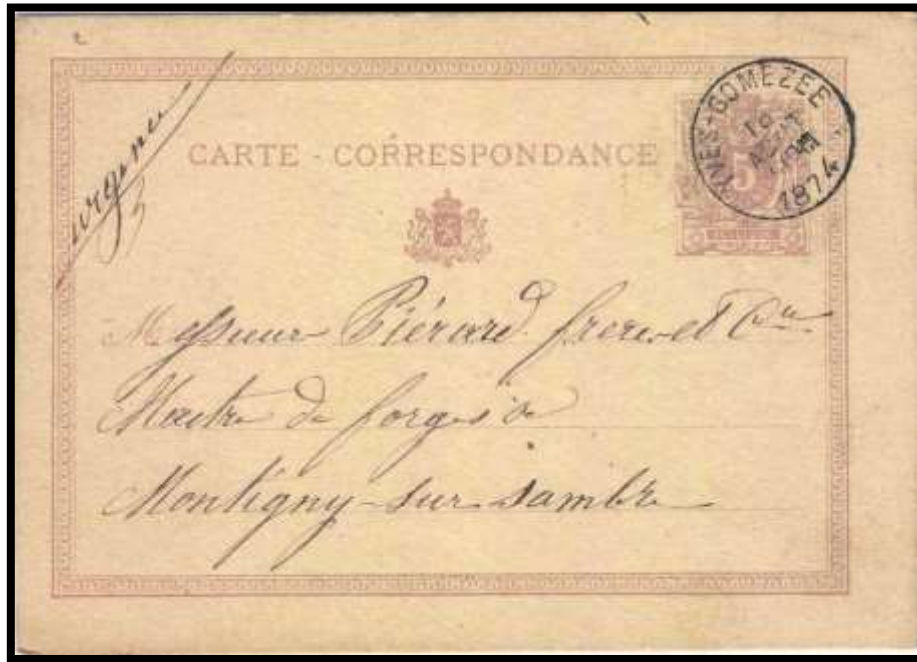 urgence
CARTE - CORRESPONDANCE
YVES-GOMEZEE
1874
5
Messieurs Piérard frères et Cie
Maître de forges à
Montigny-sur-Sambre